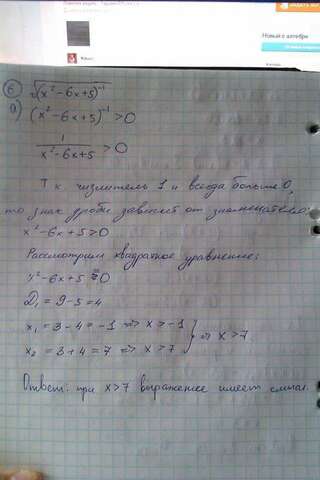 Новый о алгебра
6) √(x²-6x+5)⁻¹
g) (x²-6x+5)⁻¹>0
1/(x²-6x+5)>0
Тк числитель 1 и всегда больше 0,
то знак дроби зависит от знаменателя:
x²-6x+5>0
Рассмотрим квадратное уравнение:
x²-6x+5=0
D₁=9-5=4
x₁=3-4=-1 => x>-1
x₂=3+4=7 => x>7 } => x>7
Ответ: при x>7 выражение имеет смысл.